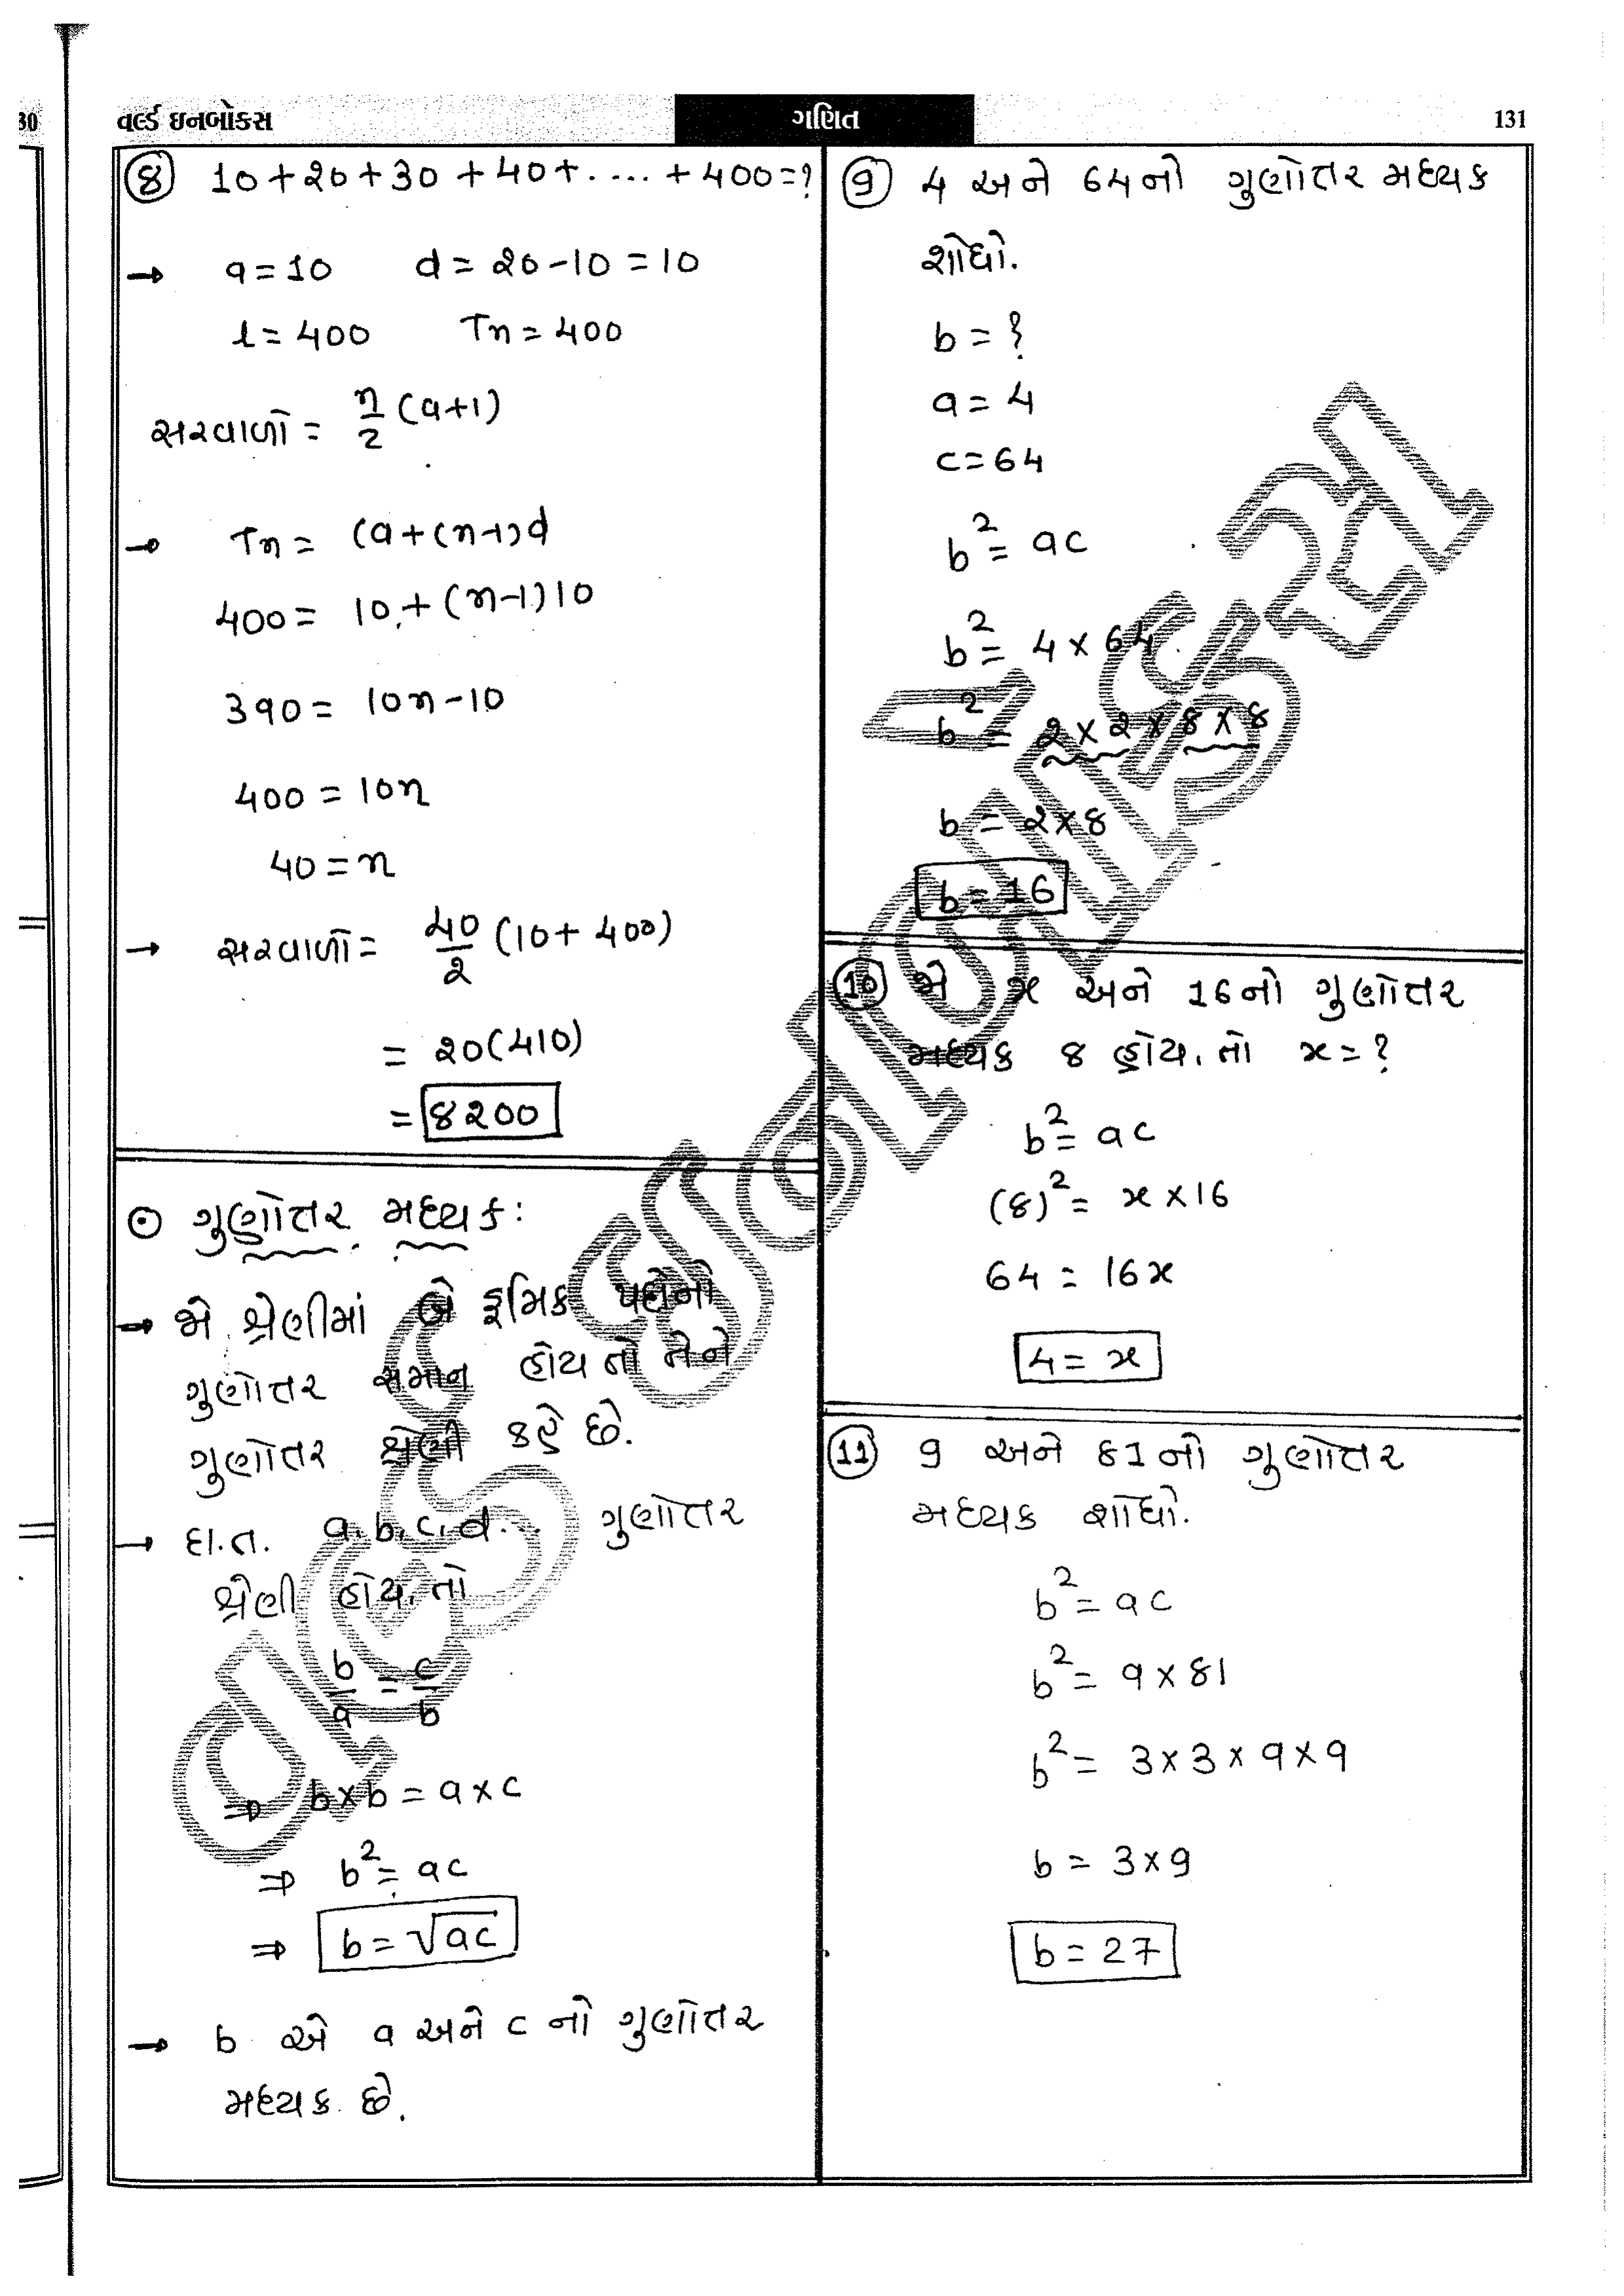 30
વર્લ્ડ ઇનબોક્સ
ગણિત
131
⑧ 10+20+30+40+....+400=?
→ a=10 d=20-10=10
l=400 Tn=400
સરવાળો = n/2 (a+l)
→ Tn = (a+(n-1)d
400 = 10+(n-1)10
390 = 10n-10
400 = 10n
40 = n
→ સરવાળો = 40/2 (10+400)
= 20(410)
= 8200
⊙ ગુણોત્તર મધ્યક:
→ જે શ્રેણીમાં બે ક્રમિક પદોનો
ગુણોત્તર સમાન હોય તો તેને
ગુણોત્તર શ્રેણી કહે છે.
→ દા.ત. a,b,c,d... ગુણોત્તર
શ્રેણી હોય, તો
b/a = c/b
⇒ b×b = a×c
⇒ b² = ac
⇒ b = √ac
→ b એ a અને c નો ગુણોત્તર
મધ્યક છે.
⑨ 4 અને 64નો ગુણોત્તર મધ્યક
શોધો.
b = ?
a = 4
c = 64
b² = ac
b² = 4×64
b² = 2×2×8×8
b = 2×8
b = 16
⑩ જો x અને 16નો ગુણોત્તર
મધ્યક 8 હોય, તો x = ?
b² = ac
(8)² = x×16
64 = 16x
4 = x
⑪ 9 અને 81નો ગુણોત્તર
મધ્યક શોધો.
b² = ac
b² = 9×81
b² = 3×3×9×9
b = 3×9
b = 27